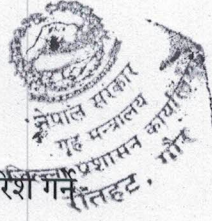 नेपाल सरकार
गृह मन्त्रालय
प्रशासन कार्यालय
रौतहट, गौर
गर्ने